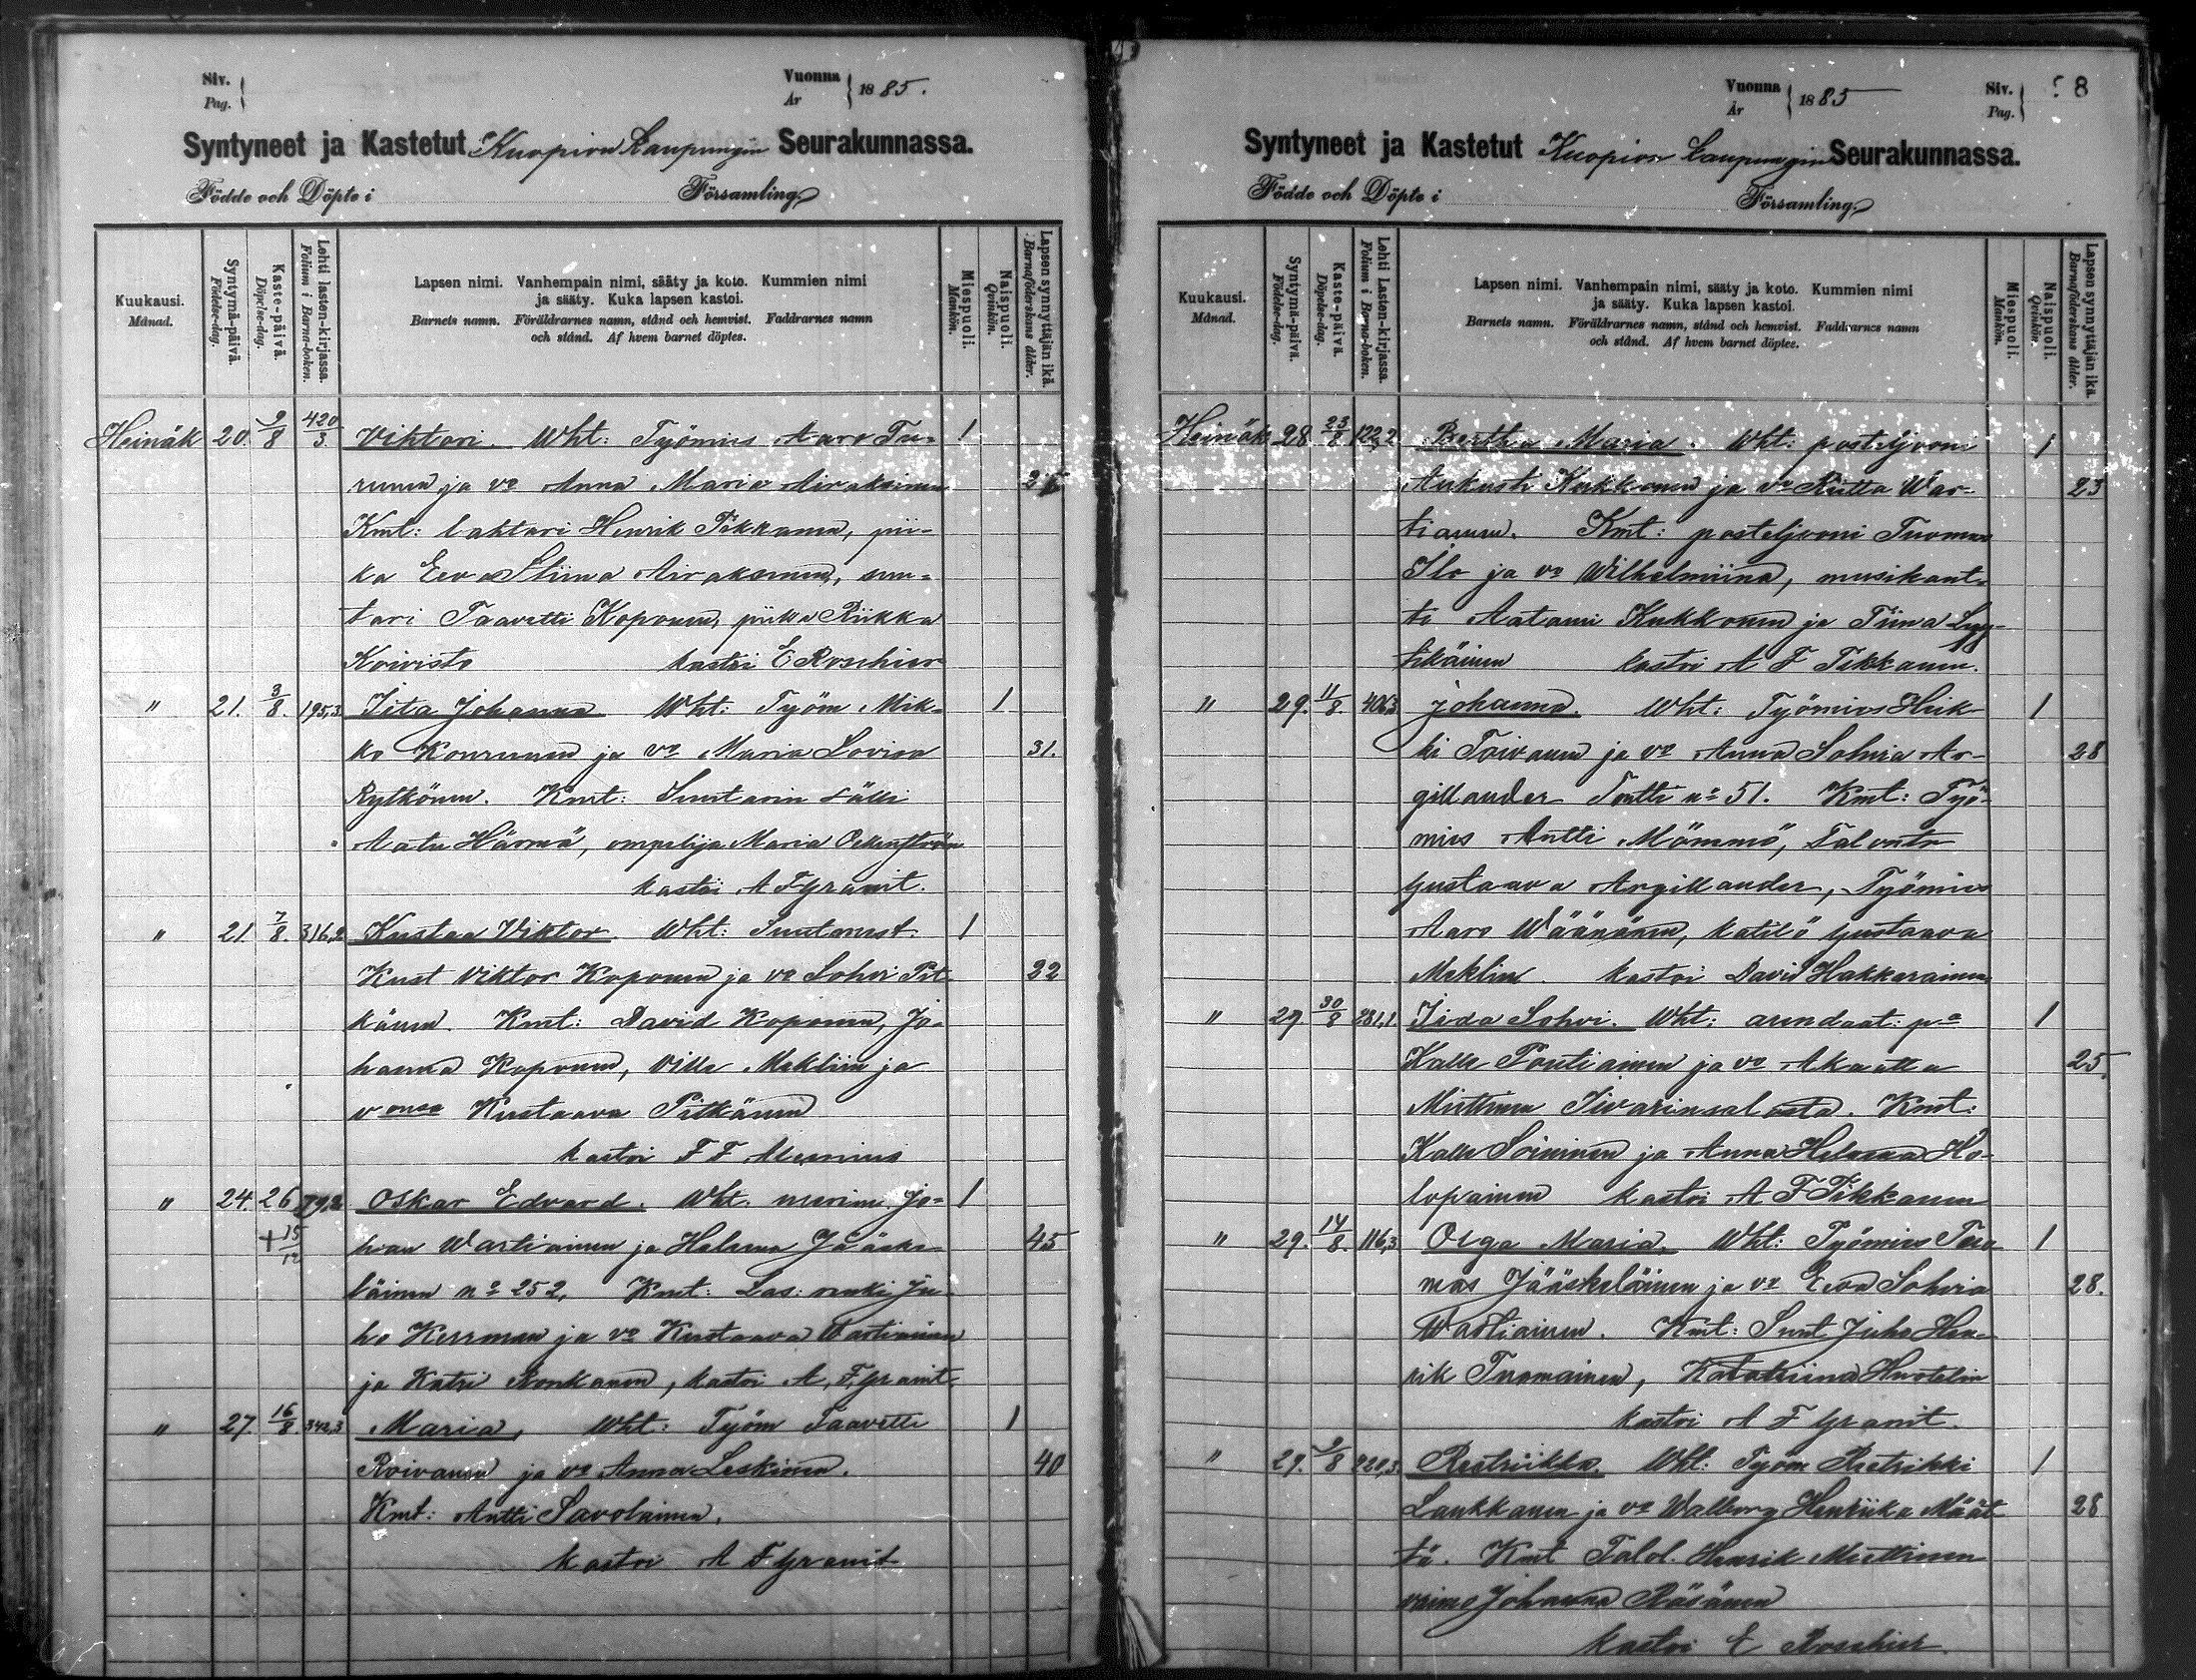 Siv.
Pag.
Vuonna
År
1885.
Syntyneet ja Kastetut Kuopion Kaupungin Seurakunnassa.
Födde och Döpte i Församling.
Kuukausi.
Månad.
Syntymä-päivä.
Födelse-dag.
Kaste-päivä.
Döpelse-dag.
Lehti lasten-kirjassa.
Folium i Barna-boken.
Lapsen nimi. Vanhempain nimi, sääty ja koto. Kummien nimi
ja sääty. Kuka lapsen kastoi.
Barnets namn. Föräldrarnes namn, stånd och hemvist. Faddrarnes namn
och stånd. Af hvem barnet döptes.
Miespuoli.
Mankön.
Naispuoli.
Qvinkön.
Lapsen synnyttäjän ikä.
Barnaföderskans ålder.
Heinäk 20. 9/8 420/3. Viktori. Wht: Työmies Aaro Tu- 1
runen ja vo Anna Maria Airaksinen
Kmt: lahtari Henrik Tikkanen, pii-
ka Eeva Stiina Airaksinen, sun-
tari Taavetti Koponen, piika Riikka
Koivisto kastoi E Roschier
" 21. 3/8. 195,3. Iita Johanna Wht: Työm Mik- 1
ko Konrunen ja vo Maria Lovisa 31.
Rytkönen. Kmt: Suutarin sälli
Aatu Härmä, ompelija Maria
kastoi A F Granit.
" 21. 7/8. 316,2 Kustaa Viktor. Wht: Suutarist. 1
Kust Viktor Koponen ja vo Sohvi Pit- 22
känen. Kmt: David Koponen, Jo-
hanna Koponen, Ville Meklin ja
vonsa Kustaava Pitkänen
kastoi F F
" 24. 26 79,2 Oskar Edvard. Wht. murim. Jo- 1
+15/12 han Wartiainen ja Helena Jääske- 45
läinen no 252. Kmt: Las: renki Ju-
ho Kerrman ja vo Kustaava Wartiainen
ja Katri Ronkanen, kastoi A. F. Granit
" 27. 16/8. 342,3 Maria, Wht: Työm Taavetti 1
Roivanen ja vo Anna Leskinen. 40
Kmt: Antti Savolainen.
kastoi A F Granit
Vuonna
År
1885
Siv.
Pag.
8
Syntyneet ja Kastetut Kuopion Kaupungin Seurakunnassa.
Födde och Döpte i Församling.
Kuukausi.
Månad.
Syntymä-päivä.
Födelse-dag.
Kaste-päivä.
Döpelse-dag.
Lehti Lasten-kirjassa.
Folium i Barna-boken.
Lapsen nimi. Vanhempain nimi, sääty ja koto. Kummien nimi
ja sääty. Kuka lapsen kastoi.
Barnets namn. Föräldrarnes namn, stånd och hemvist. Faddrarnes namn
och stånd. Af hvem barnet döptes.
Miespuoli.
Mankön.
Naispuoli.
Qvinkön.
Lapsen synnyttäjän ikä
Barnaföderskans ålder.
Heinäk 28 23/8 122,2 Bertha Maria. Wht: posteljooni 1
Aukusti Kukkonen ja vo Riitta War- 23
tiainen. Kmt: posteljooni Tuomas
Ilo ja vo Wilhelmiina, musikant-
ti Aatami Kukkonen ja Tiina Lyy-
tikäinen kastoi A F Tikkanen.
" 29. 11/8. 406,3 Johanna. Wht: Työmies Heik- 1
ki Toivanen ja vo Anna Sohvia Ar- 28
gillander Tontti no 51. Kmt: Työ-
mies Antti Mömmö, Talonts
Gustaava Argillander, Työmies
Aaro Wäänänen, kätilö Gustaava
Meklin. kastoi David Hakkarainen
" 29. 30/8 281,1 Iida Sohvi. Wht: arendaat: pa 1
Kalle Pontiainen ja vo Akaatta 25.
Miettinen Iivarinsalosta. Kmt:
Kalle Soininen ja Anna Helena Ho-
lopainen kastoi A F Tikkanen
" 29. 14/8. 116,3 Olga Maria. Wht: Työmies Tuo- 1
mas Jääskeläinen ja vo Eeva Sohvia 28.
Wartiainen. Kmt: Suut Juho Hen-
rik Tuomainen, Katariina Huotelin
kastoi A F Granit.
" 29. 9/8 220,3 Reetriikka. Wht: Työm Reetrikki 1
Laukkanen ja vo Walborg Henriika Määt- 28
tä. Kmt Talol. Henrik Miettinen
vaimo Johanna Räsänen
kastoi E Roschier